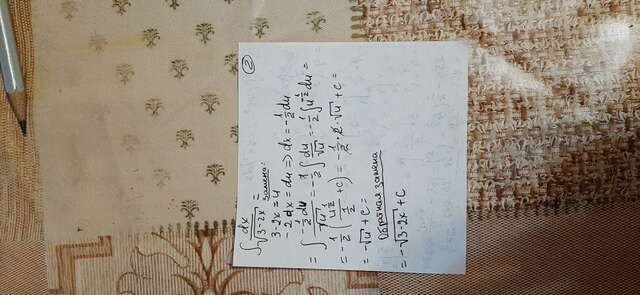 ②
∫ dx/√(3-2x) =
замена:
3-2x = u
-2dx = du => dx = -1/2 du
= ∫ (-1/2 du)/√u = -1/2 ∫ du/√u = -1/2 ∫ u^(-1/2) du =
= -1/2 (u^(1/2)/(1/2) + C) = -1/2 · 2 · √u + C =
= -√u + C =
Обратная замена
= -√(3-2x) + C